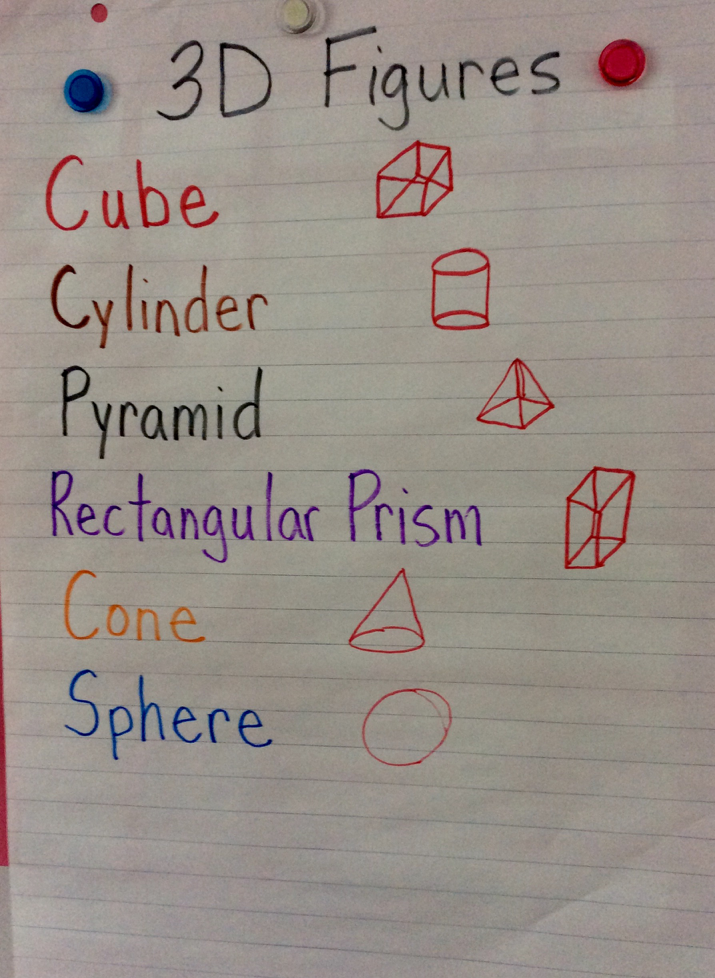 3D Figures
Cube
Cylinder
Pyramid
Rectangular Prism
Cone
Sphere